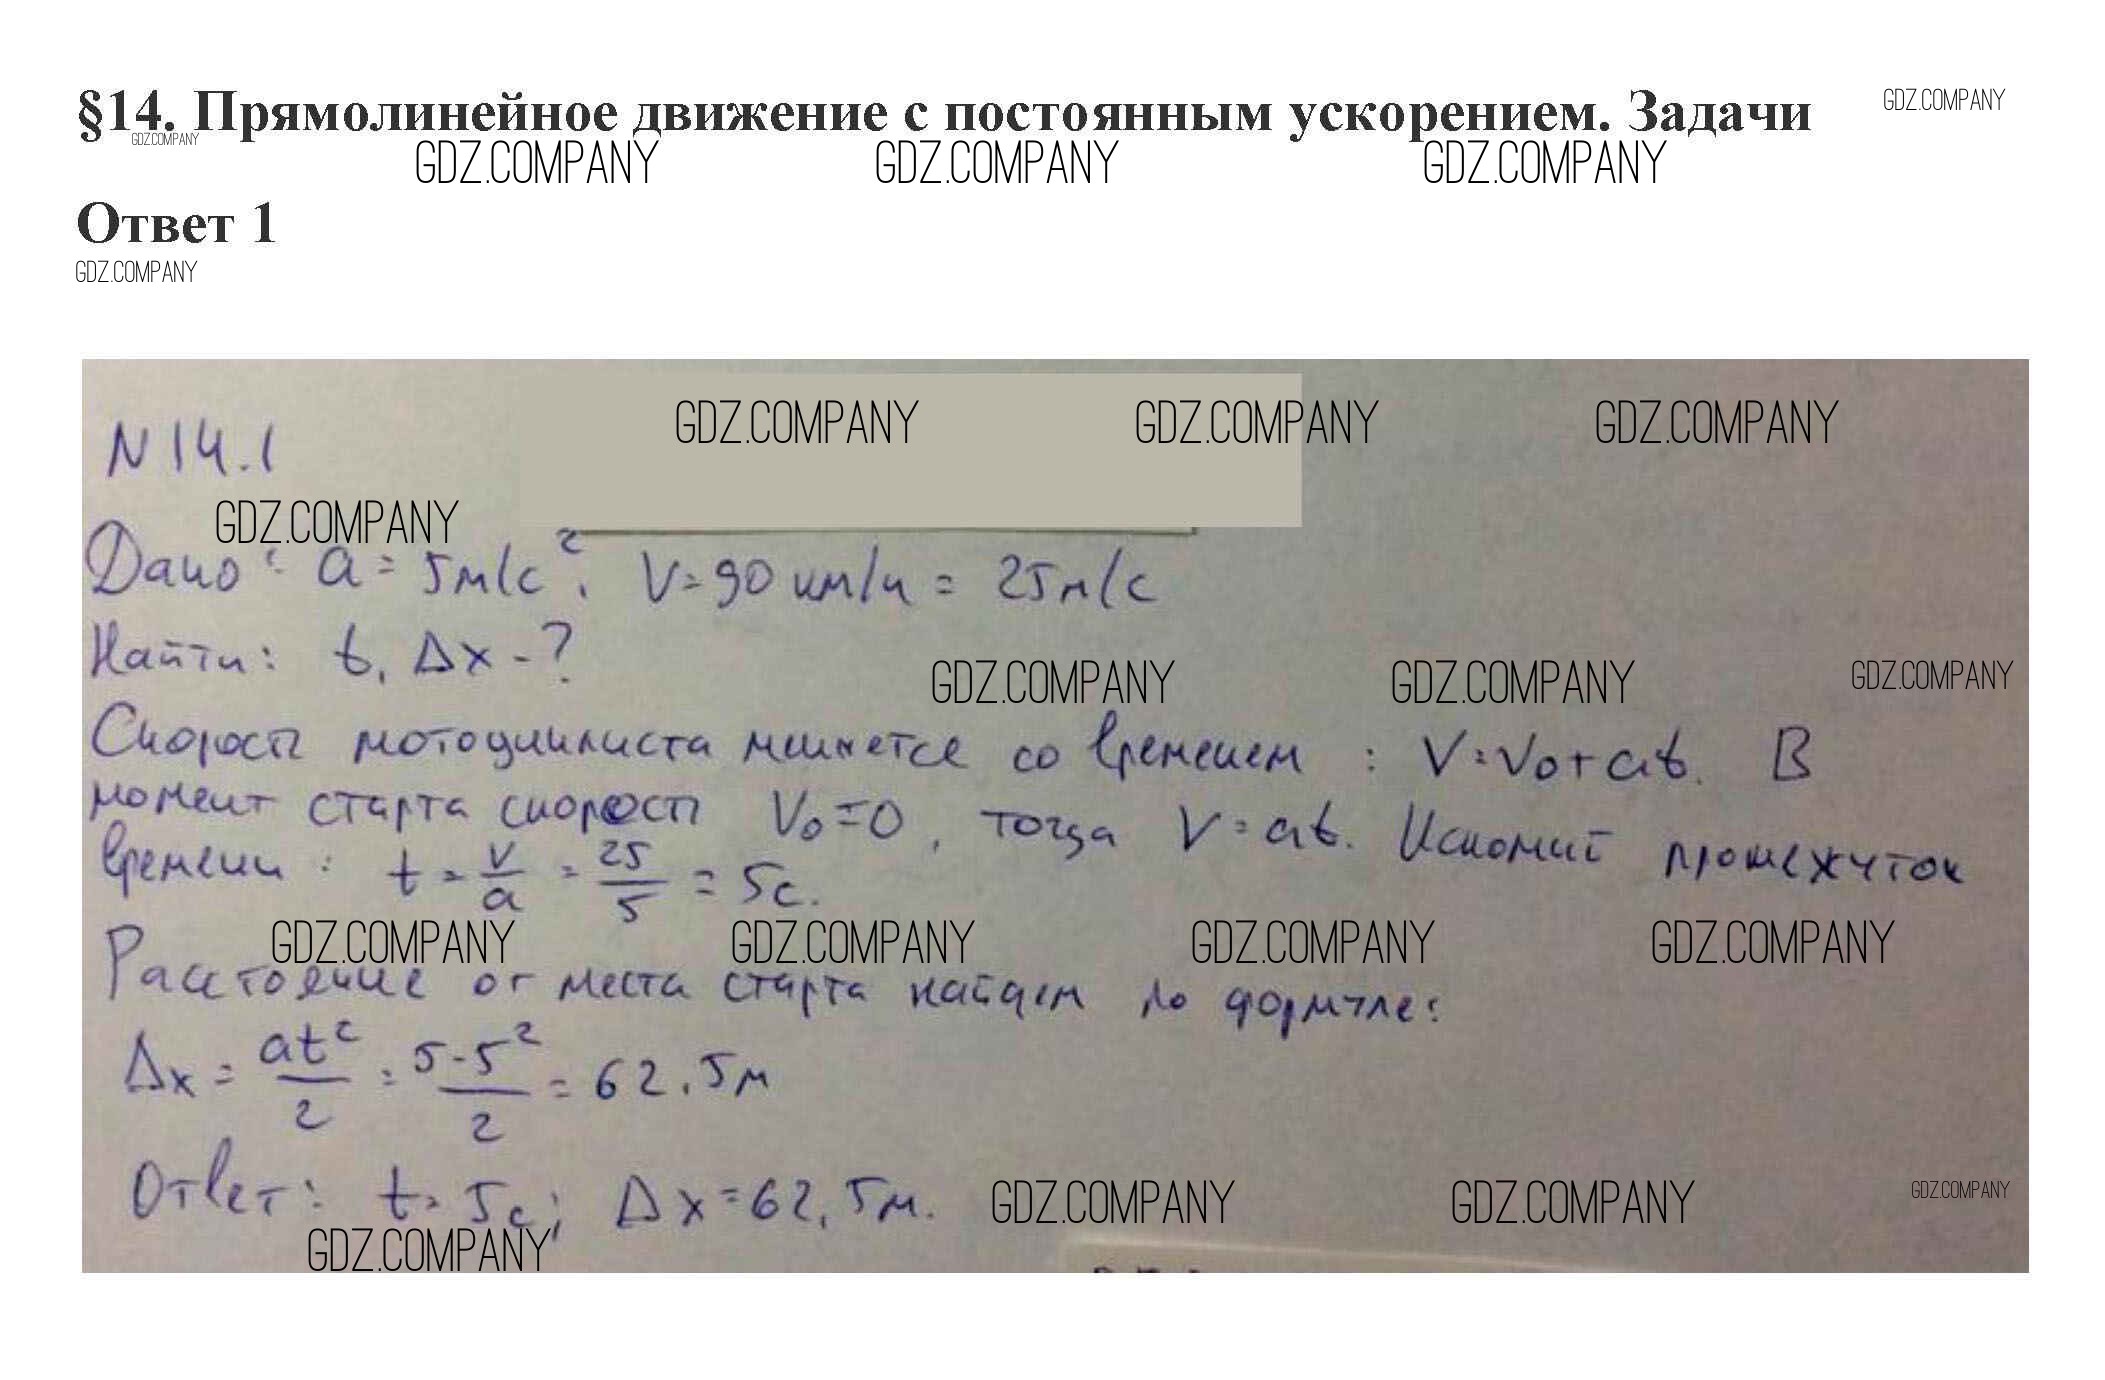 §14. Прямолинейное движение с постоянным ускорением. Задачи
GDZ.COMPANY
GDZ.COMPANY
GDZ.COMPANY GDZ.COMPANY GDZ.COMPANY
Ответ 1
GDZ.COMPANY
GDZ.COMPANY GDZ.COMPANY GDZ.COMPANY
N 14.1
GDZ.COMPANY
Дано: a = 5 м/с², V = 90 км/ч = 25 м/с
Найти: t, Δx - ?
GDZ.COMPANY GDZ.COMPANY GDZ.COMPANY
Скорость мотоциклиста меняется со временем : V = V₀ + at. В
момент старта скорость V₀ = 0, тогда V = at. Искомый промежуток
времени : t = V/a = 25/5 = 5 с.
GDZ.COMPANY GDZ.COMPANY GDZ.COMPANY GDZ.COMPANY
Расстояние от места старта найдем по формуле:
Δx = at²/2 = 5·5²/2 = 62,5 м
Ответ: t = 5 с; Δx = 62,5 м.
GDZ.COMPANY GDZ.COMPANY GDZ.COMPANY
GDZ.COMPANY